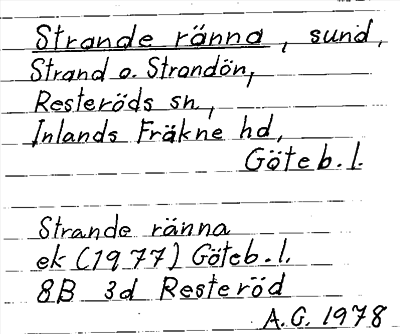 Strande ränna, sund,
Strand o. Strandön,
Resteröds sn,
Inlands Fräkne hd,
Göteb.l.
Strande ränna
ek (1977) Göteb.l.
8B 3d Resteröd
A.G. 1978